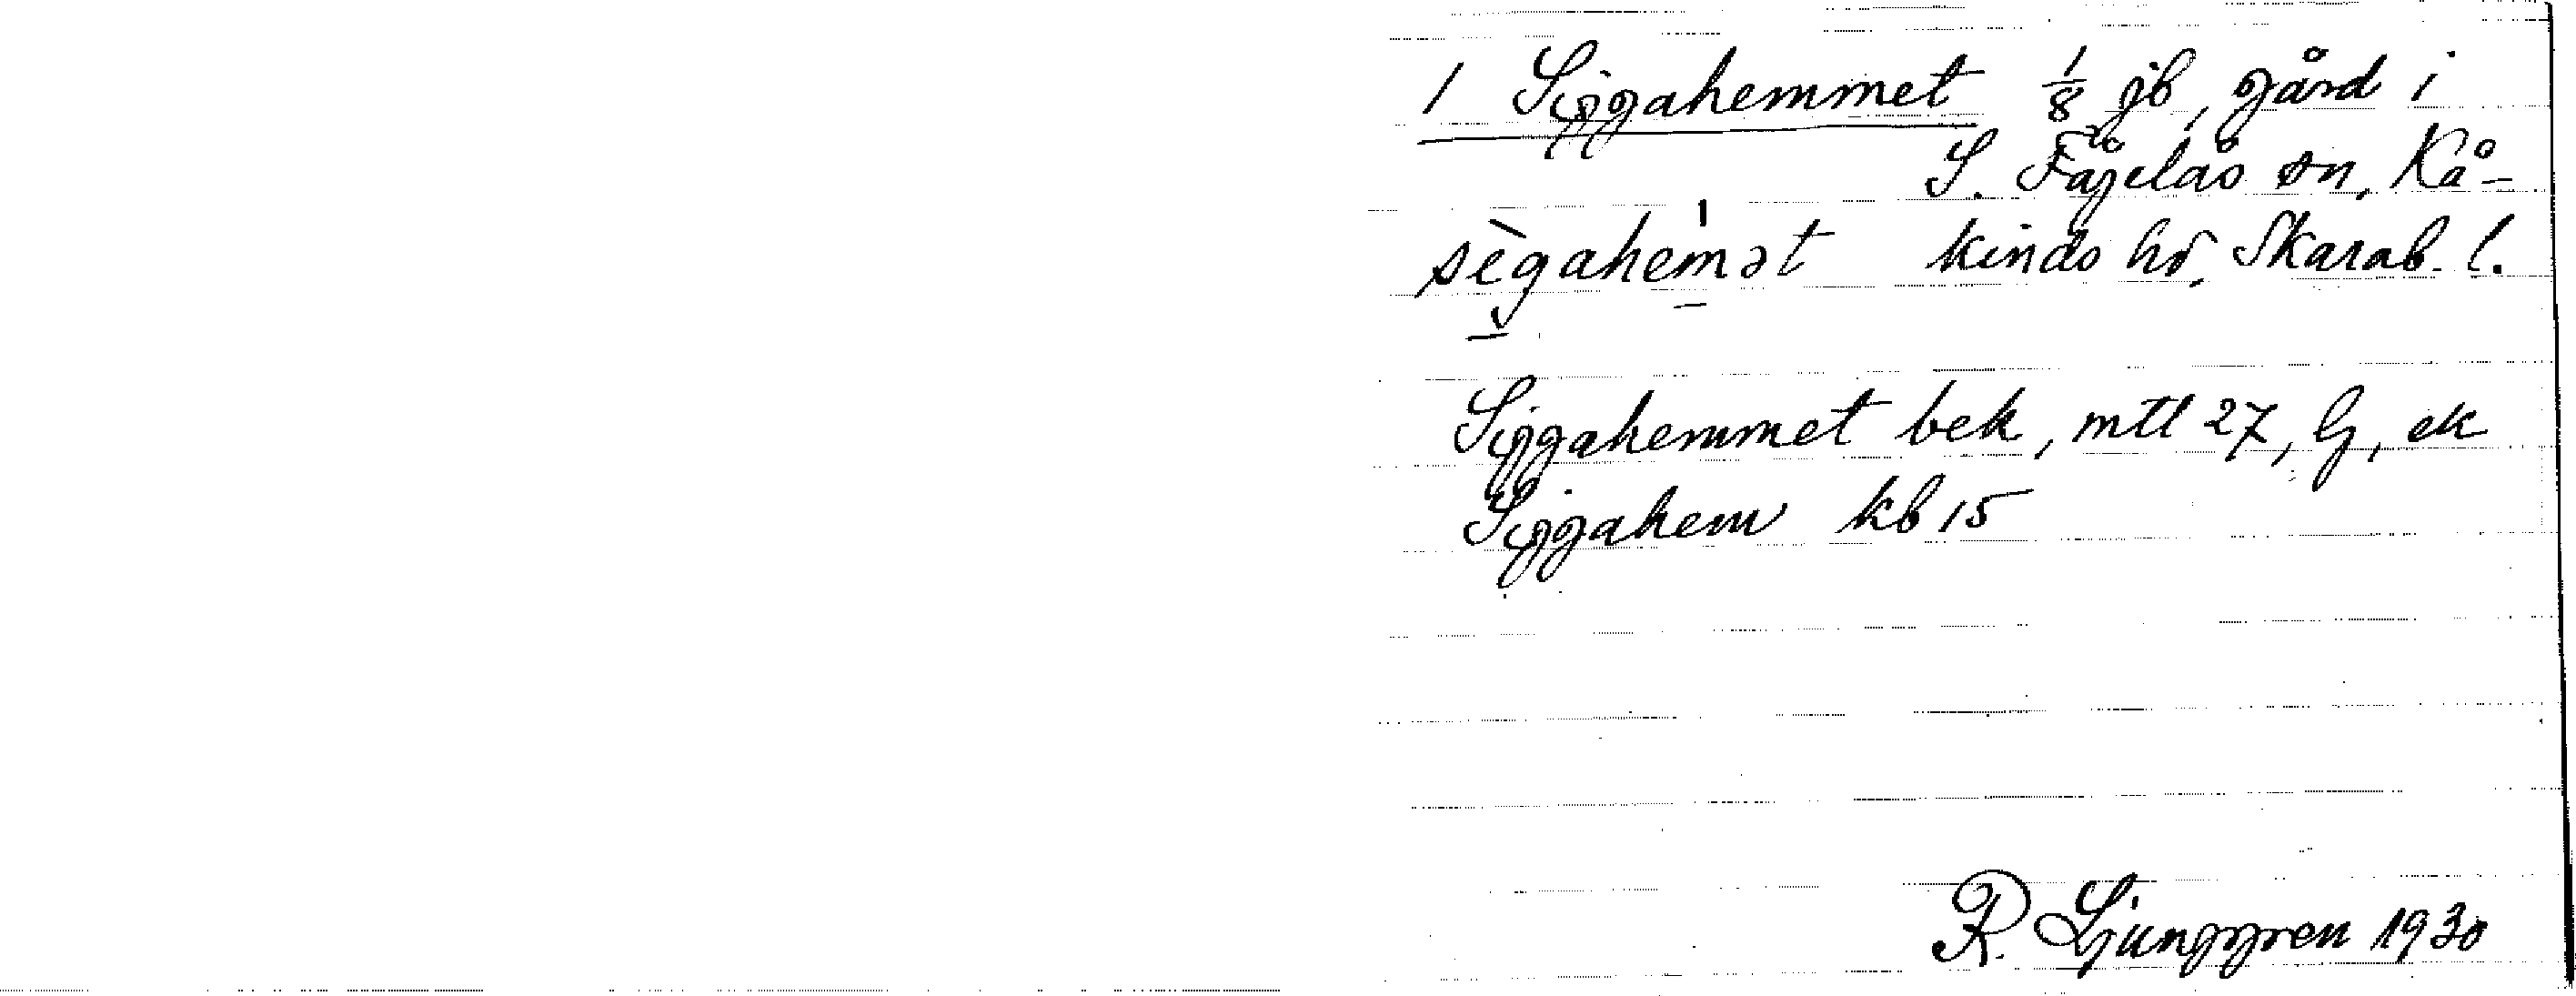 1 Siggahemmet 1/8 jb, gård i
S. Fågelås sn, Kå-
sègahemət kinds hd, Skarab. l.
Siggahemmet bek, mtl 27, G, ek
Siggahem kb 15
R. Ljunggren 1930